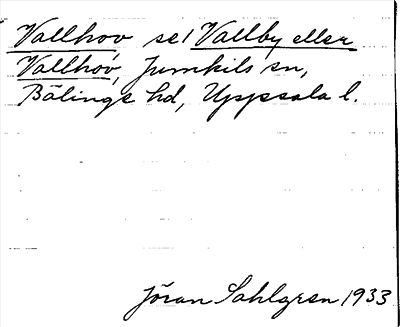 Vallhov se! Vallby eller
Vallhov, Jumkils sn,
Bälinge hd, Uppsala l.
Jöran Sahlgren 1933